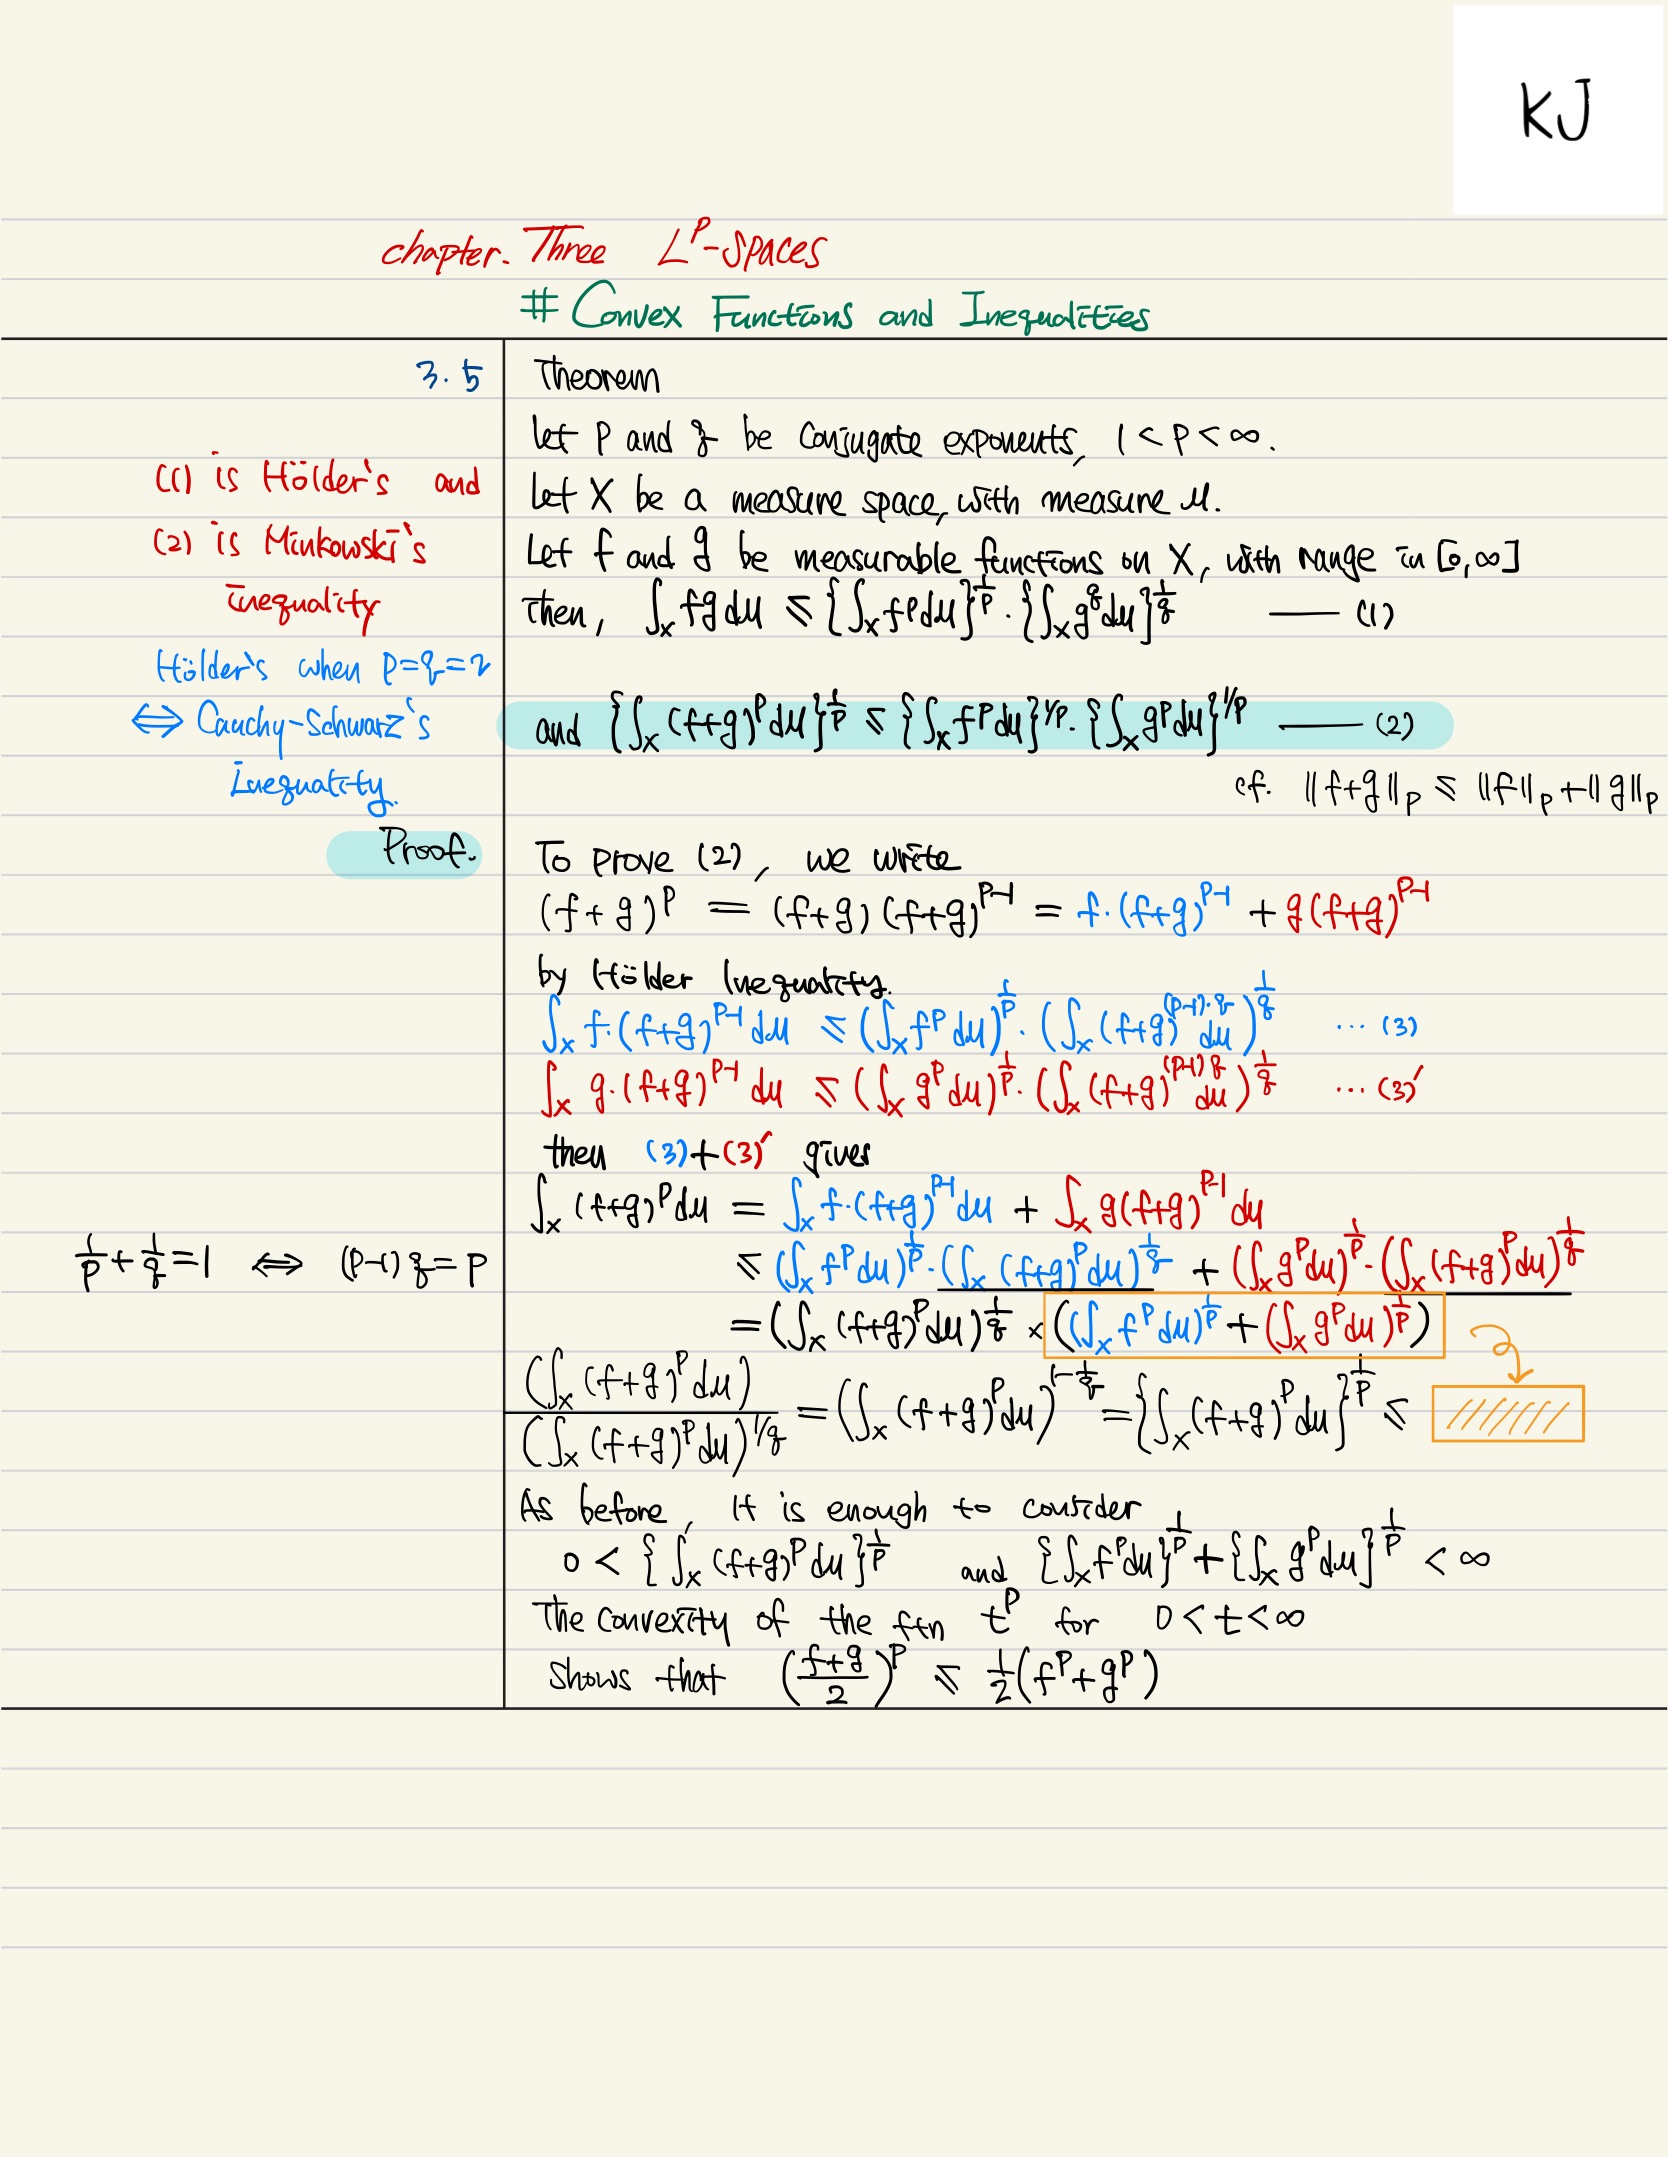 KJ
chapter. Three L^p-spaces
# Convex Functions and Inequalities
3.5 Theorem
Let p and q be conjugate exponents, 1 < p < ∞.
(1) is Hölder's and
(2) is Minkowski's
inequality
Let X be a measure space, with measure μ.
Let f and g be measurable functions on X, with range in [0, ∞]
Then, ∫_X fg dμ ≤ {∫_X f^p dμ}^{1/p} · {∫_X g^q dμ}^{1/q} —— (1)
Hölder's when p=q=2
⇔ Cauchy-Schwarz's
Inequality.
and {∫_X (f+g)^p dμ}^{1/p} ≤ {∫_X f^p dμ}^{1/p} · {∫_X g^p dμ}^{1/p} —— (2)
cf. ||f+g||_p ≤ ||f||_p + ||g||_p
Proof. To prove (2), we write
(f+g)^p = (f+g)(f+g)^{p-1} = f·(f+g)^{p-1} + g(f+g)^{p-1}
by Hölder Inequality.
∫_X f·(f+g)^{p-1} dμ ≤ (∫_X f^p dμ)^{1/p} · (∫_X (f+g)^{(p-1)·q} dμ)^{1/q} ··· (3)
∫_X g·(f+g)^{p-1} dμ ≤ (∫_X g^p dμ)^{1/p} · (∫_X (f+g)^{(p-1)q} dμ)^{1/q} ··· (3)′
then (3)+(3)′ gives
∫_X (f+g)^p dμ = ∫_X f·(f+g)^{p-1} dμ + ∫_X g(f+g)^{p-1} dμ
1/p + 1/q = 1 ⇔ (p-1)q = p
≤ (∫_X f^p dμ)^{1/p} · (∫_X (f+g)^p dμ)^{1/q} + (∫_X g^p dμ)^{1/p} · (∫_X (f+g)^p dμ)^{1/q}
= (∫_X (f+g)^p dμ)^{1/q} × ((∫_X f^p dμ)^{1/p} + (∫_X g^p dμ)^{1/p})
(∫_X (f+g)^p dμ) / (∫_X (f+g)^p dμ)^{1/q} = (∫_X (f+g)^p dμ)^{1-1/q} = {∫_X (f+g)^p dμ}^{1/p} ≤
As before, it is enough to consider
0 < {∫_X (f+g)^p dμ}^{1/p} and {∫_X f^p dμ}^{1/p} + {∫_X g^p dμ}^{1/p} < ∞
The convexity of the ftn t^p for 0 < t < ∞
shows that ((f+g)/2)^p ≤ 1/2 (f^p + g^p)